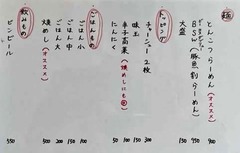 麺
とんこつらーめん(オススメ) 900
BSW(豚魚割らーめん) 950
大盛 150
トッピング
チャーシュー2枚 300
味玉 150
辛子高菜(焼めしにも◎) 100
にんにく 50
ごはんもの
ごはん小 100
ごはん中 150
ごはん大 200
焼めし(オススメ) 500
飲みもの
ビンビール 550